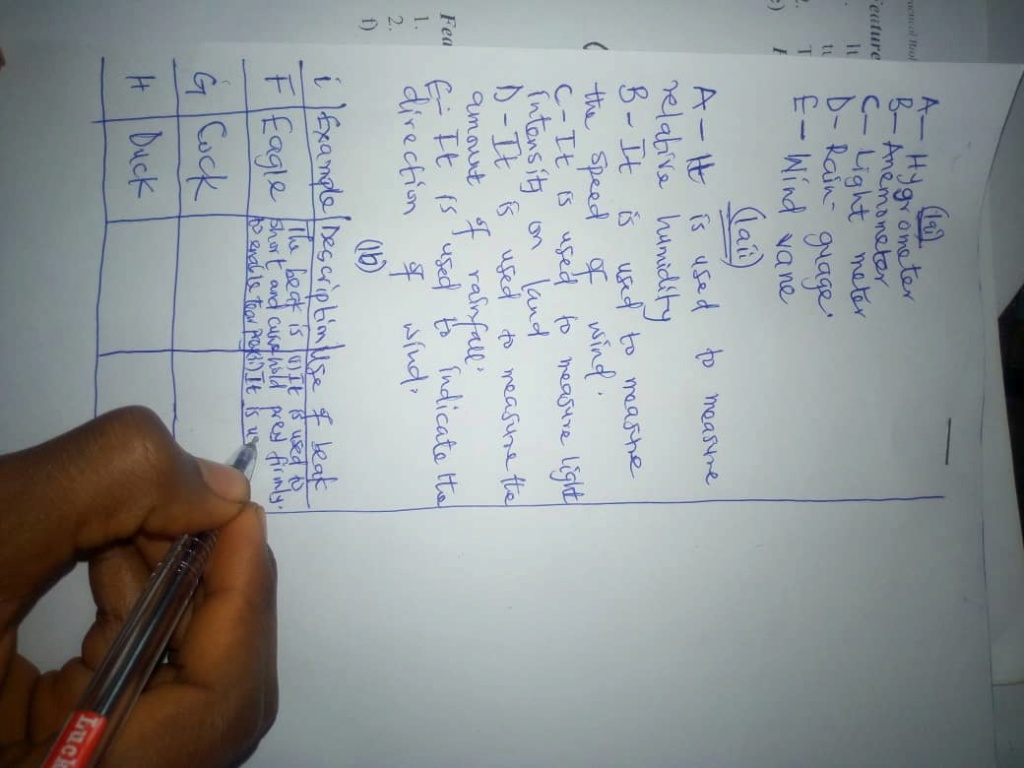 (1ai)
A - Hygrometer
B - Anemometer
C - Light meter
D - Rain-guage.
E - Wind vane
(1aii)
A - It is used to measure
relative humidity
B - It is used to measure
the speed of wind.
C - It is used to measure light
intensity on land
D - It is used to measure the
amount of rainfall.
E - It is used to indicate the
direction of wind.
(1b)
i Example Description Use of beak
F Eagle The beak is short and curved to enable tear i) It is used to hold prey firmly. ii) It is
G Cock
H Duck
Feature
Fea
1.
2.
f)
Luck